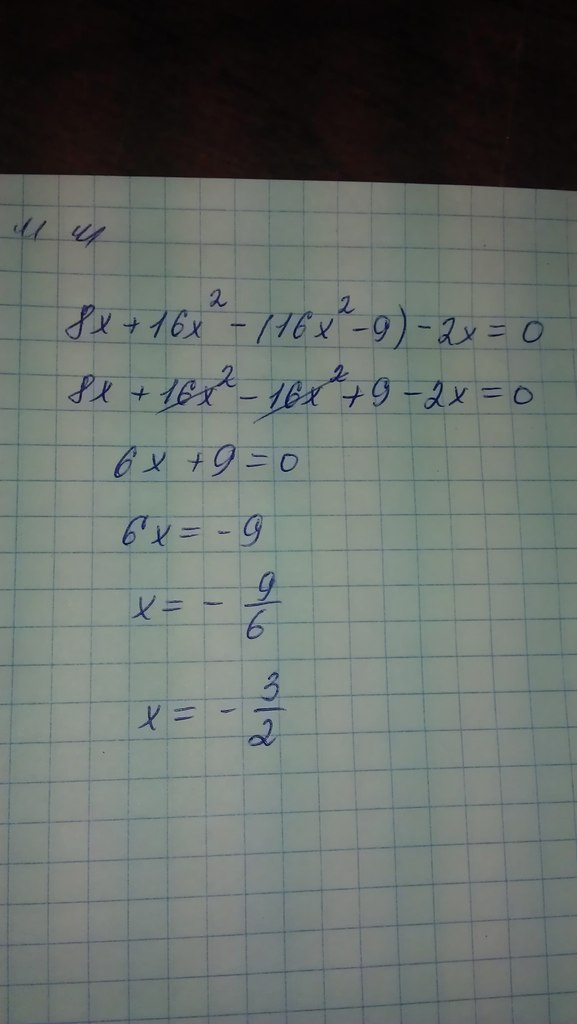 8x + 16x² - (16x² - 9) - 2x = 0
8x + 16x² - 16x² + 9 - 2x = 0
6x + 9 = 0
6x = -9
x = - 9/6
x = - 3/2